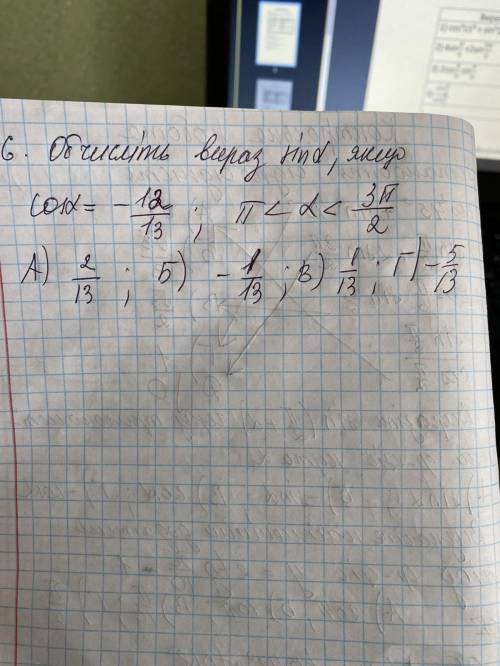 6. Обчисліть вираз sinα, якщо
cosα = -12/13 ; π < α < 3π/2
А) 2/13 ; Б) -1/13 ; В) 1/13 ; Г) -5/13